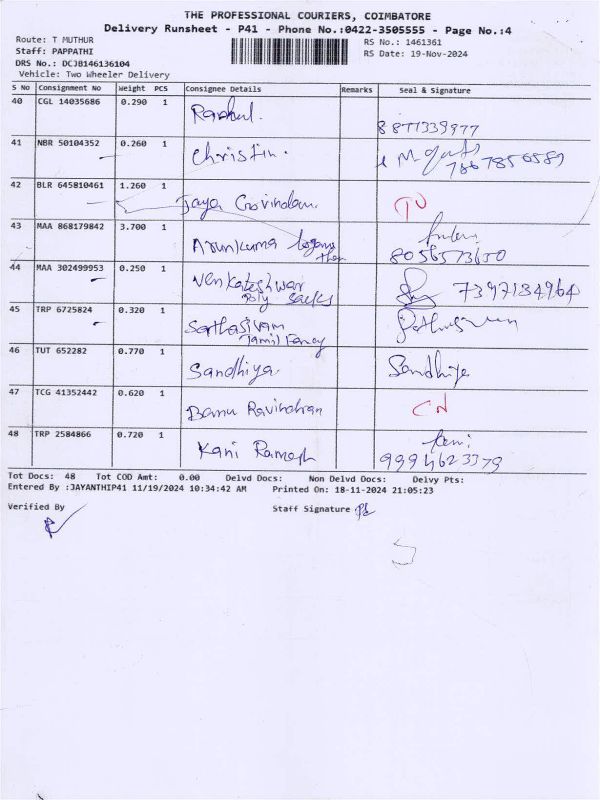 THE PROFESSIONAL COURIERS, COIMBATORE
Delivery Runsheet - P41 - Phone No.:0422-3505555 - Page No.:4
Route: T MUTHUR RS No.: 1461361
Staff: PAPPATHI RS Date: 19-Nov-2024
DRS No.: DCJB146136104
Vehicle: Two Wheeler Delivery
S No Consignment No Weight PCS Consignee Details Remarks Seal & Signature
40 CGL 14035686 0.290 1 Rashul. 8877339977
41 NBR 50104352 0.260 1 Christin. 7867856589
42 BLR 645810461 1.260 1 Jaya Govindan.
43 MAA 868179842 3.700 1 Arunkuma 8056573650
44 MAA 302499953 0.250 1 Venkateshwar 7397134964
Poly Sacks
45 TRP 6725824 0.320 1 Sarthasivam
Tamil Fancy
46 TUT 652282 0.770 1 Sandhiya. Sandhiya
47 TCG 41352442 0.620 1 Banu Ravindran CN
48 TRP 2584866 0.720 1 Kani Ramesh 9994623379
Tot Docs: 48 Tot COD Amt: 0.00 Delvd Docs: Non Delvd Docs: Delvy Pts:
Entered By :JAYANTHIP41 11/19/2024 10:34:42 AM Printed On: 18-11-2024 21:05:23
Verified By Staff Signature